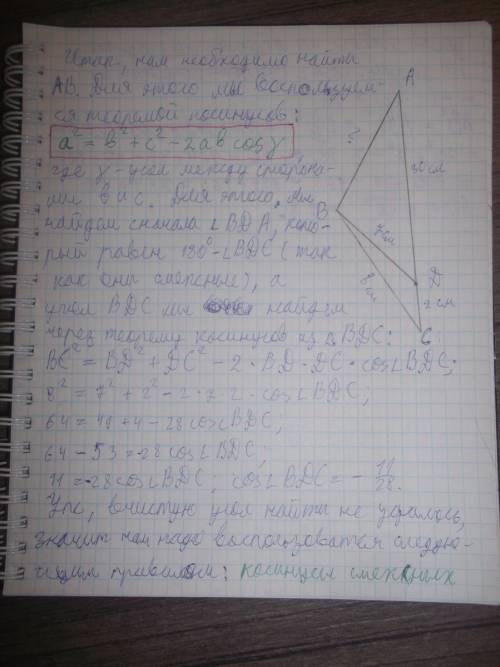 Итак, нам необходимо найти
AB. Для этого мы воспользуем-
ся теоремой косинусов:
a² = b² + c² - 2ab cosγ
где γ - угол между сторона-
ми b и c. Для этого, мы
найдём сначала ∠BDA, кото-
рый равен 180° - ∠BDC (так
как они смежные), а
угол BDC мы найдём
через теорему косинусов из △BDC:
BC² = BD² + DC² - 2 · BD · DC · cos∠BDC;
8² = 7² + 2² - 2 · 7 · 2 · cos∠BDC;
64 = 49 + 4 - 28 cos∠BDC;
64 - 53 = -28 cos∠BDC;
11 = -28 cos∠BDC; cos∠BDC = - 11/28.
Упс, вчистую угол найти не удалось,
значит нам надо воспользоваться следую-
щим правилом: косинусы смежных
A
?
30 см
B
7 см
8 см
D
2 см
C